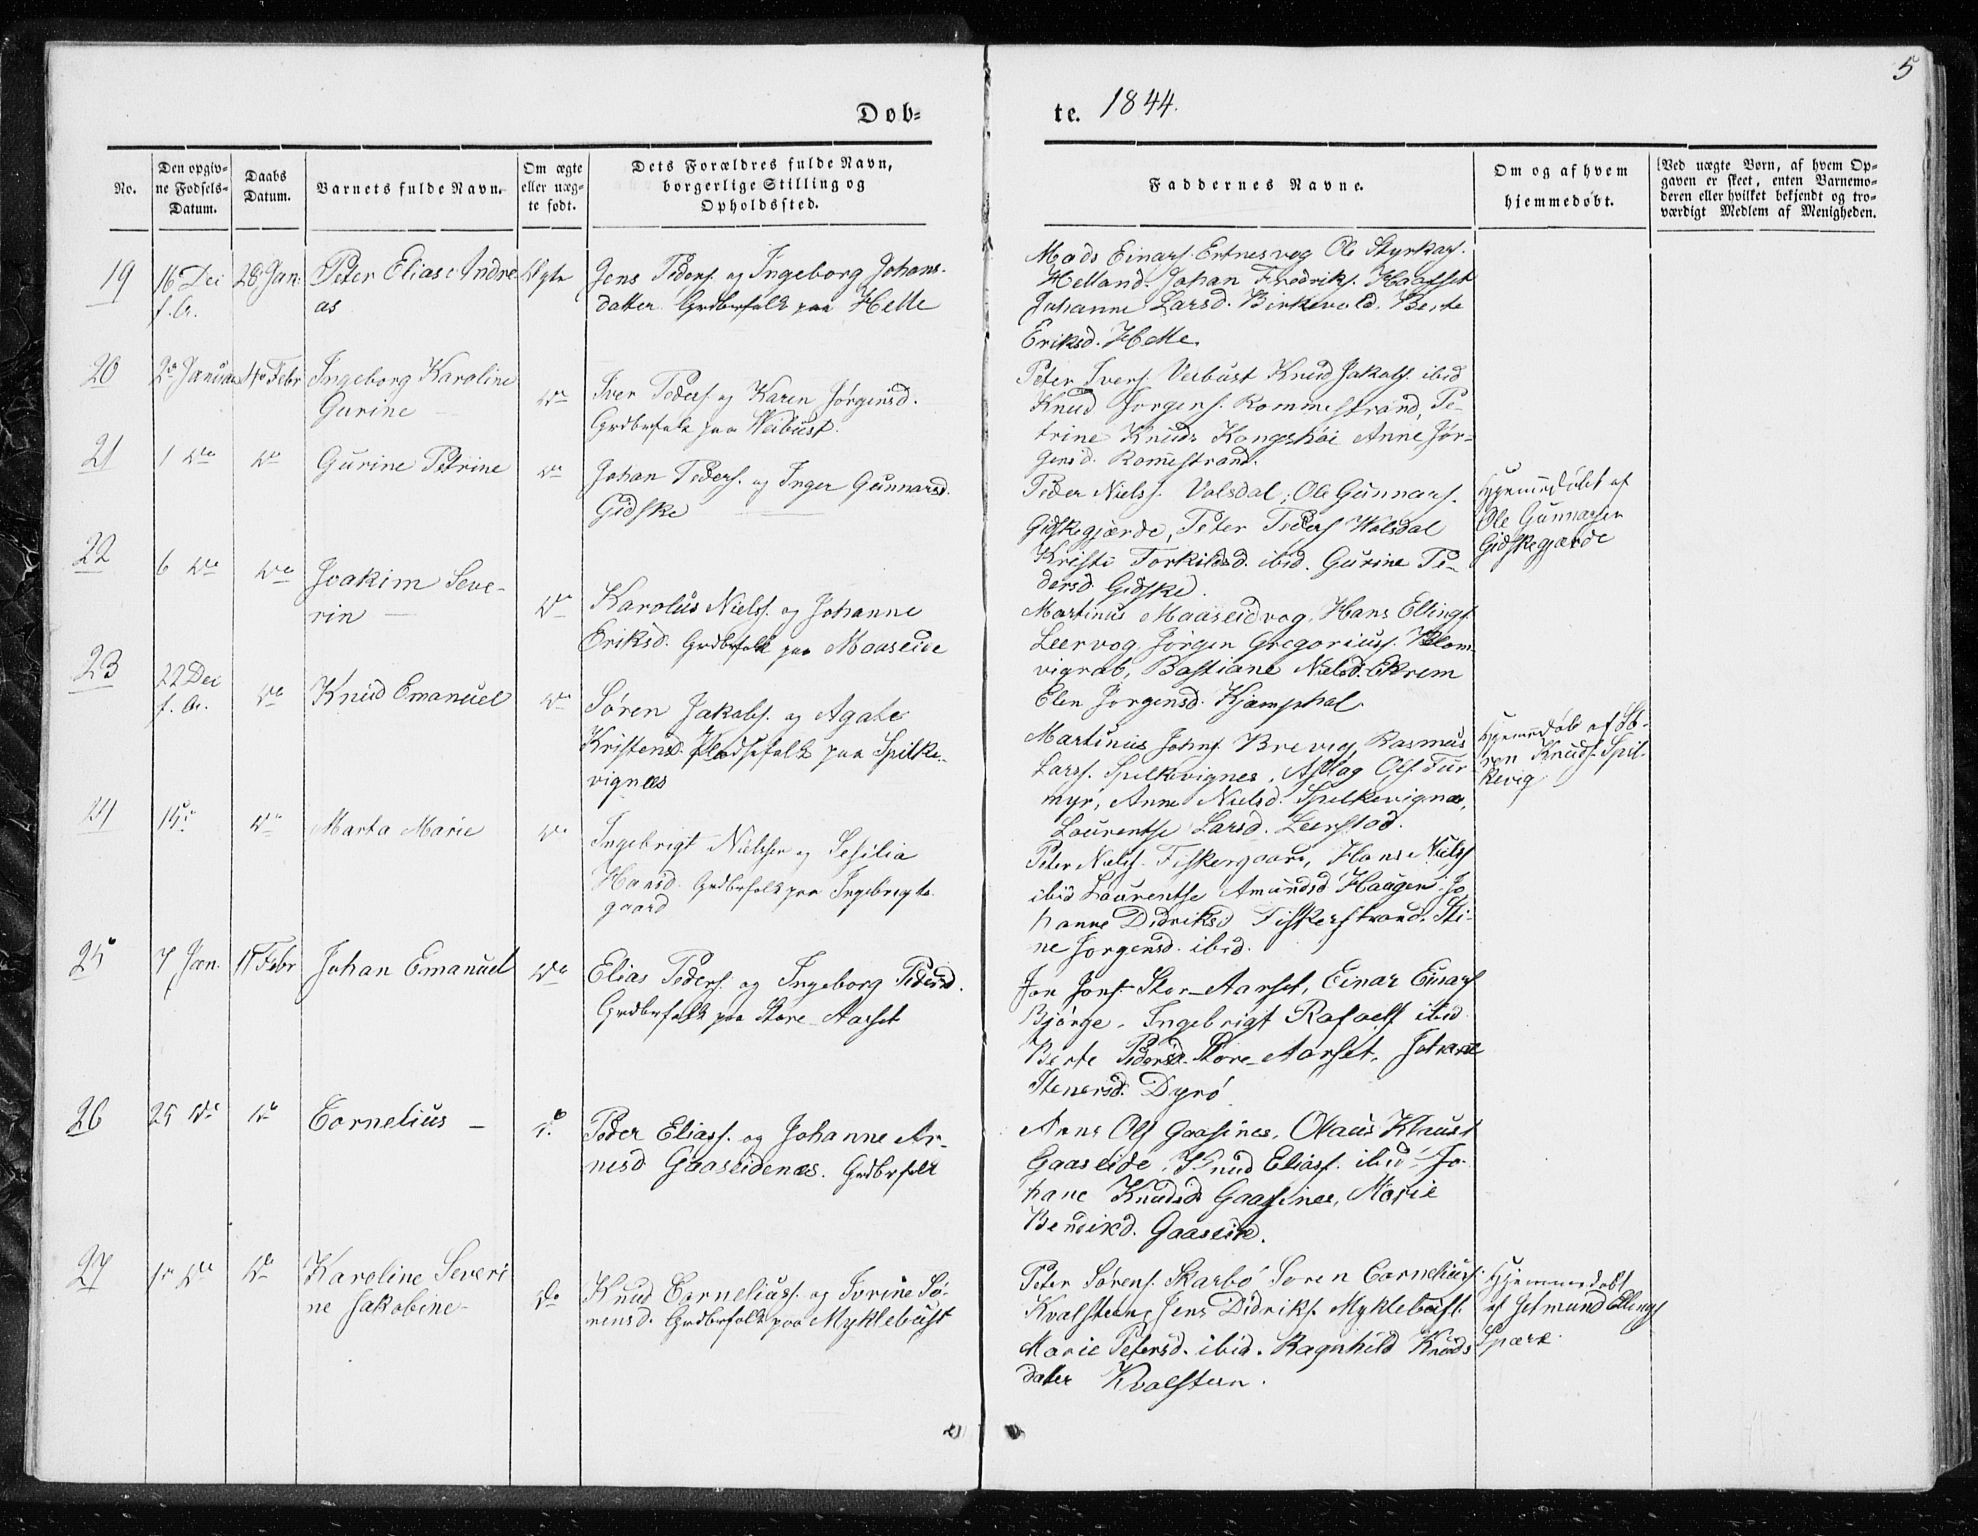 5
Døb-
te. 1844.
No.
Den opgiv-
ne Fødsels-
Datum.
Daabs
Datum.
Barnets fulde Navn.
Om ægte
eller uæg-
te født.
Dets Forældres fulde Navn,
borgerlige Stilling og
Opholdssted.
Faddernes Navne.
Om og af hvem
hjemmedøbt.
Ved uægte Børn, af hvem Op-
gaven er skeet, enten Barnemo-
deren eller hvilket bekjendt og tro-
værdigt Medlem af Menigheden.
19
16 Dec
f. A.
28 Jan.
Peter Elias Andre
as
Ægte
Jens Peders. og Ingeborg Johans-
datter Grdbrfolk paa Helle
Mads Einars. Ertnesvog Ole Styrkars.
Helland. Johan Fredriks. Haasset
Johanne Larsd. Birkevold. Berte
Eriksd. Helle.
20
2 Januar
4 Febr
Ingeborg Karoline
Gurine
Do
Iver Peders. og Karen Jørgensd.
Grdbrfolk paa Veibust.
Peter Ivers. Veibust Knud Jakobs. ibid
Knud Jørgens. Rommestrand, Pe-
trine Knuds Kongshåi Anne Jør-
gensd. Romestrand.
21
1 Do
Do
Gurine Petrine
Do
Johan Peders. og Inger Gunnarsd.
Gidske
Peder Niels. Volsdal, Ole Gunnars.
Gidskegjærde, Peter Peders Volsdal
Kristi Torkildsd. ibid. Gurine Pe-
dersd Gidske.
Hjemmedøbt af
Ole Gunnarsen
Gidskegjærde
22
6 Do
Do
Joakim Seve-
rin
Do
Karolus Niels. og Johanne
Eriksd. Grdbrfolk paa Maaseide
Martinus Maaseidvog, Hans Ellings.
Leervog, Jørgen Gregorius. Blom
vigrab, Bastiane Nielsd. Ekrem
Elen Jørgensd. Kjæmphol
23
22 Dec
f. A.
Do
Knud Emanuel
Do
Søren Jakobs. og Agate
Kristensd. Pladsefolk paa Spilke-
vignæs
Martinus Johns. Brevig, Rasmus
Larss. Spilkevignes, Aslag Ols. Fur
myr, Anne Nielsd. Spilkevignæs,
Laurentse Larsd. Leerstad.
Hjemmedøb af Sø-
ren Knuds. Spil-
kevig
24
15
Do
Marta Marie
Do
Ingebrigt Nielssen og Sesilia
Hansd. Grdbrfolk paa Ingebrigts
gaard
Peter Niels. Fiskergaard, Hans Niels
ibid Laurentse Amundsd Haugen Jo
hanne Didriksd Fiskerstrand. Sti-
ne Jorgensd. ibid.
25
7 Jan.
11 Febr
Johan Emanuel
Do
Elias Peders. og Ingeborg Pedersd.
Grdbrfolk paa Store-Aarset
Jon Jons. Stor-Aarset, Einar Einars
Bjørge. Ingebrigt Rafaels. ibid
Berte Pedersd. Store-Aarset, Johane
Stenersd. Dyrø
26
25 Do
Do
Cornelius
Do
Peder Eliass. og Johanne Ar-
nesd Gaaseidenæs. Grdbrfolk
Ols Gaasines, Olaus Klaus.
Gaaseide, Knud Eliass. ibid Jo-
hane Knudsd. Gaasines, Marie
Bendikd. Gaaseide.
27
Do
Do
Karoline Severi
ne Jakobine
Do
Knud Corneliuss. og Ivrine Sø-
rensd. Grdbrfolk paa Myklebust
Peter Sørens. Skarbø Soren Cornelius.
Kvalsteen, Jens Didriks. Myklebust
Marie Petersd. ibid. Ragnhild Knuds
dater Kvalsteen.
Hjemmedøbt
af Jetmund Ellings
Spære